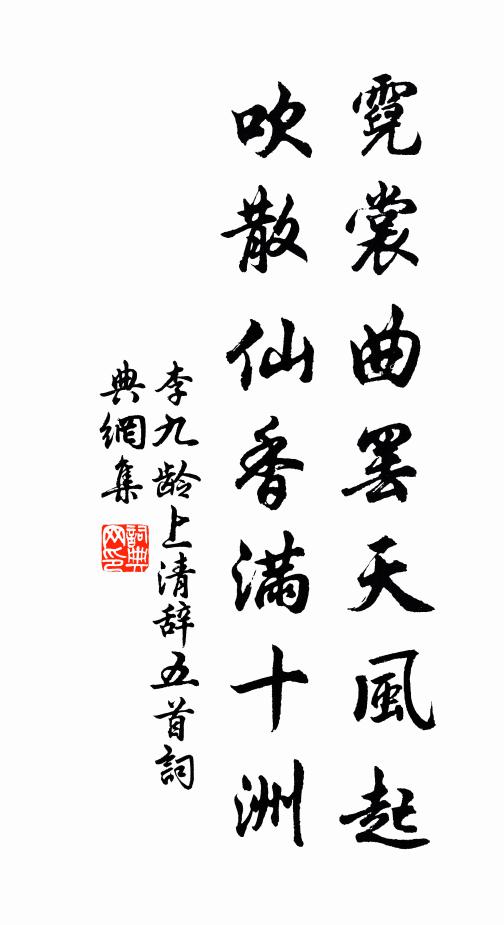 霓裳曲罢天風起
吹散仙香滿十洲
李九龄上清辞五首詞
典網集
詞典
网印